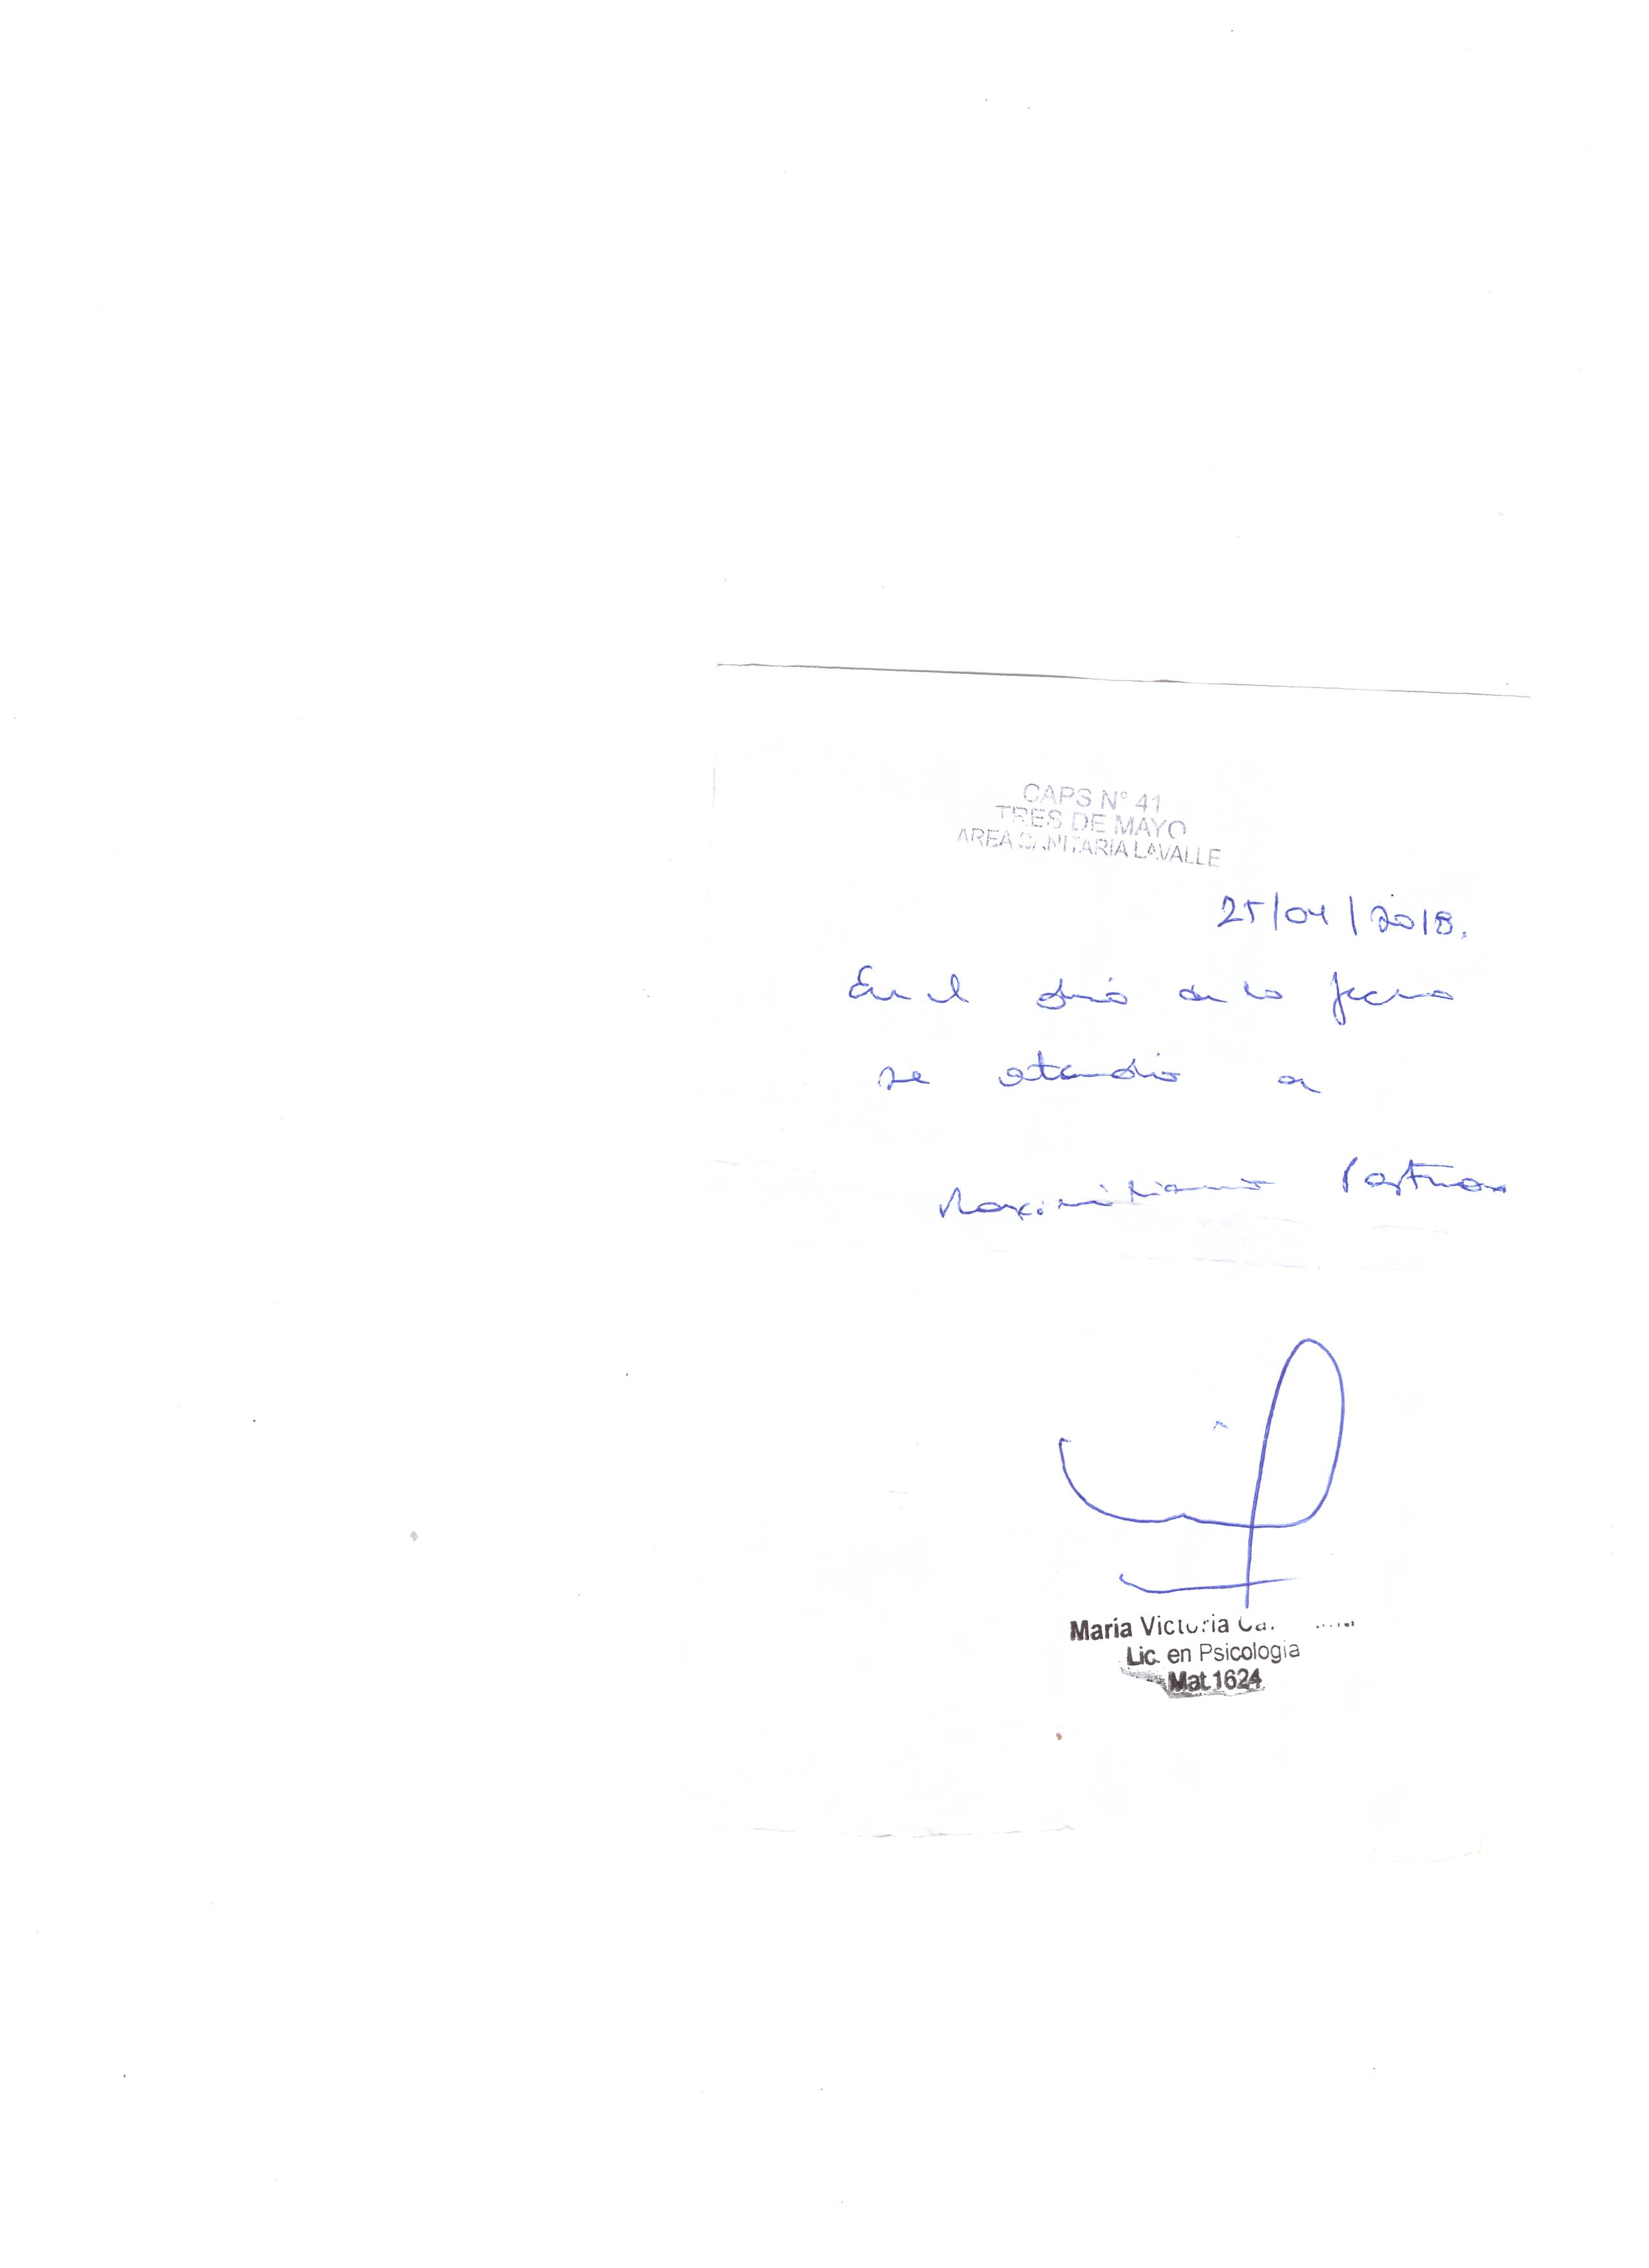 CAPS N° 41
TRES DE MAYO
AREA SANITARIA LAVALLE
25/04/2018.
En el día de la fecha
se atendió a
Maximiliano
María Victoria
Lic. en Psicologia
Mat.1624